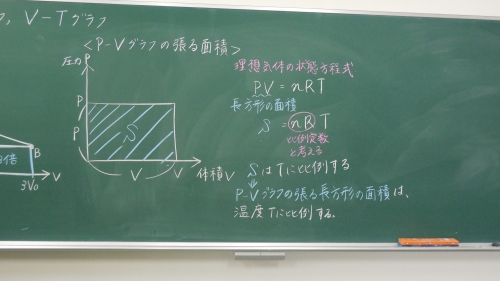 フ, V-Tグラフ
<P-Vグラフの張る面積>
圧力P
P
P
S
V
V
体積V
B
3倍
3V₀
V
理想気体の状態方程式
PV = nRT
長方形の面積
S = nRT
比例定数
と考える
SはTに比例する
P-Vグラフの張る長方形の面積は、
温度Tに比例する。